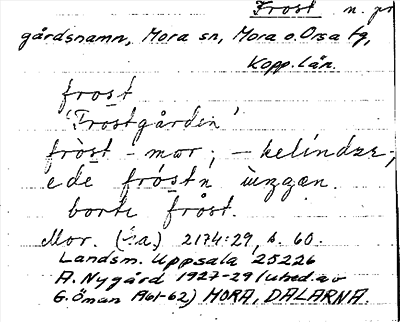 Frost n. pr
gårdsnamn, Mora sn, Mora o. Orsa tg,
Kopp. län.
frost
'Frostgården'
fròst - mær; - kelindær,
ede fróstn ùnggæn.
borti fròst.
Mor. 2174:29, s. 60.
Landsm. Uppsala 25226
A. Nygård 1927-29 (utred. av
G. Öman 1961-62) MORA, DALARNA.